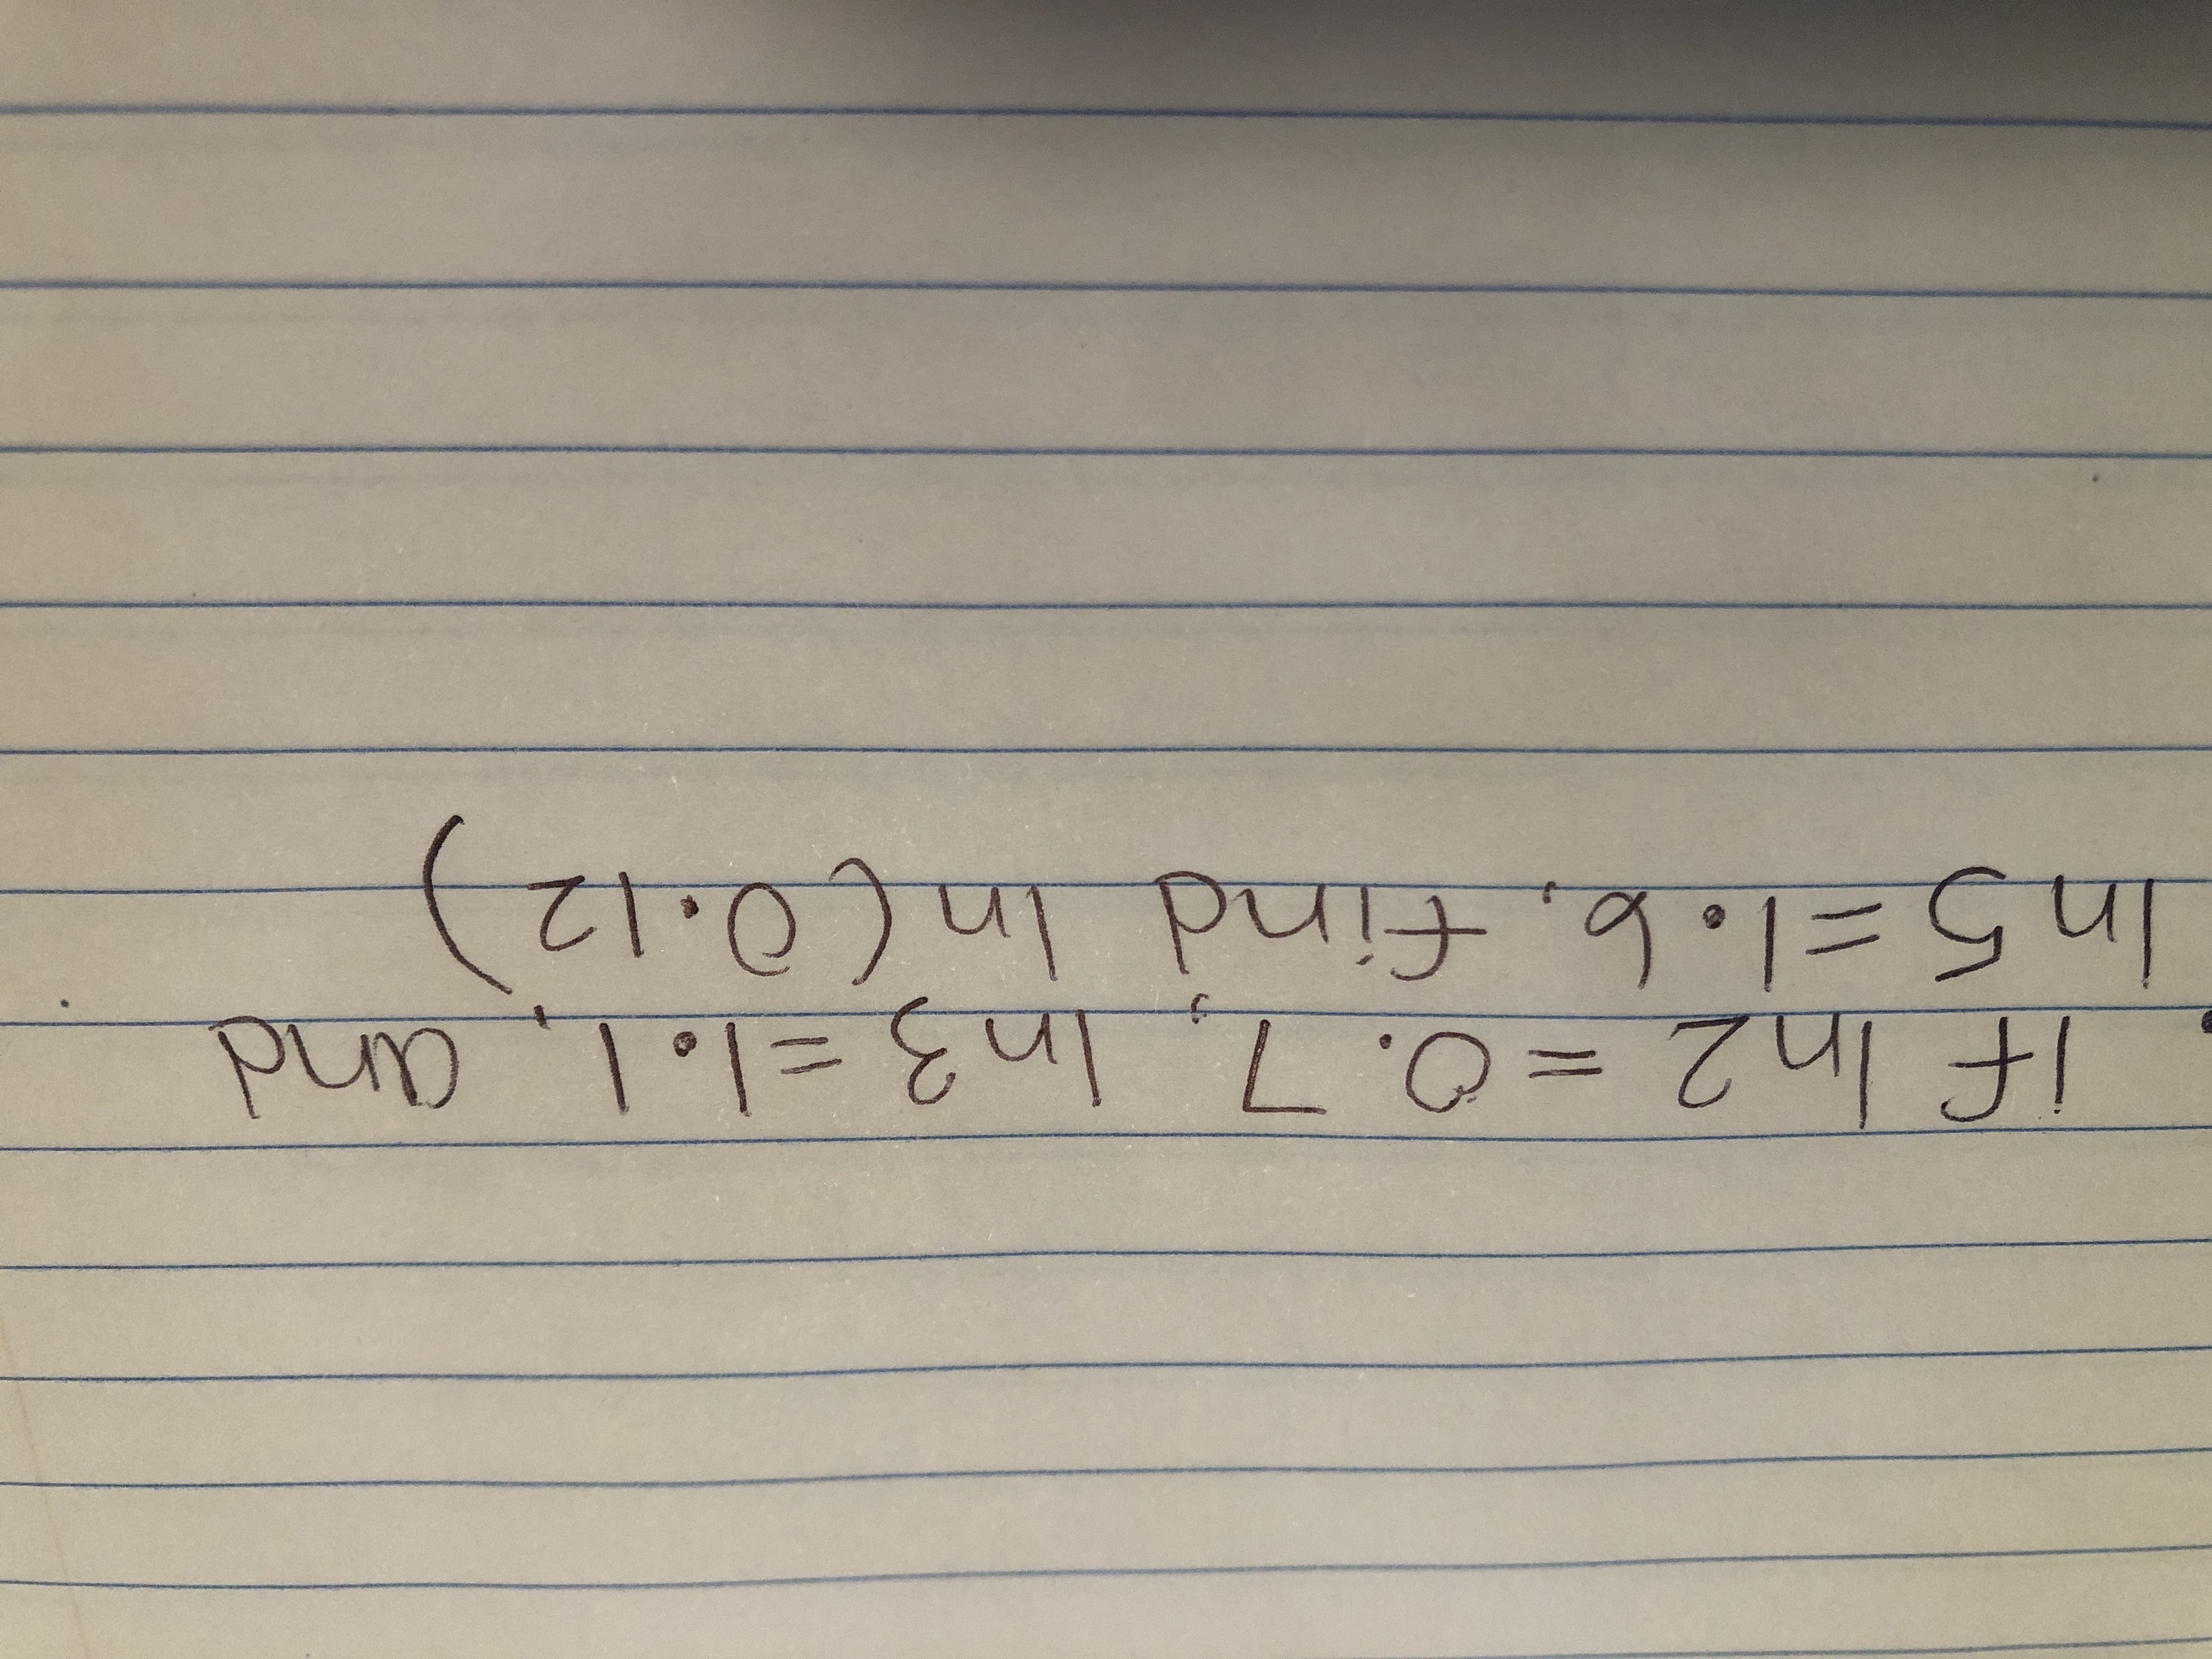 if ln2 = 0.7, ln3 = 1.1, and
ln5 = 1.6, find ln(0.12)